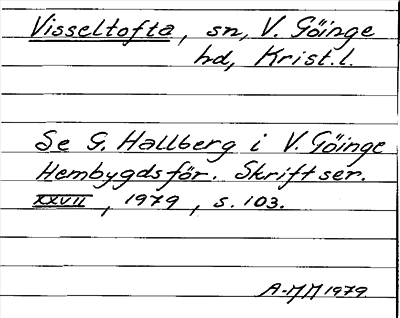 Visseltofta, sn, V. Göinge
hd, Krist.l.
Se G. Hallberg i V. Göinge
Hembygdsför. Skriftser.
XXVII, 1979, s. 103.
A-MM 1979